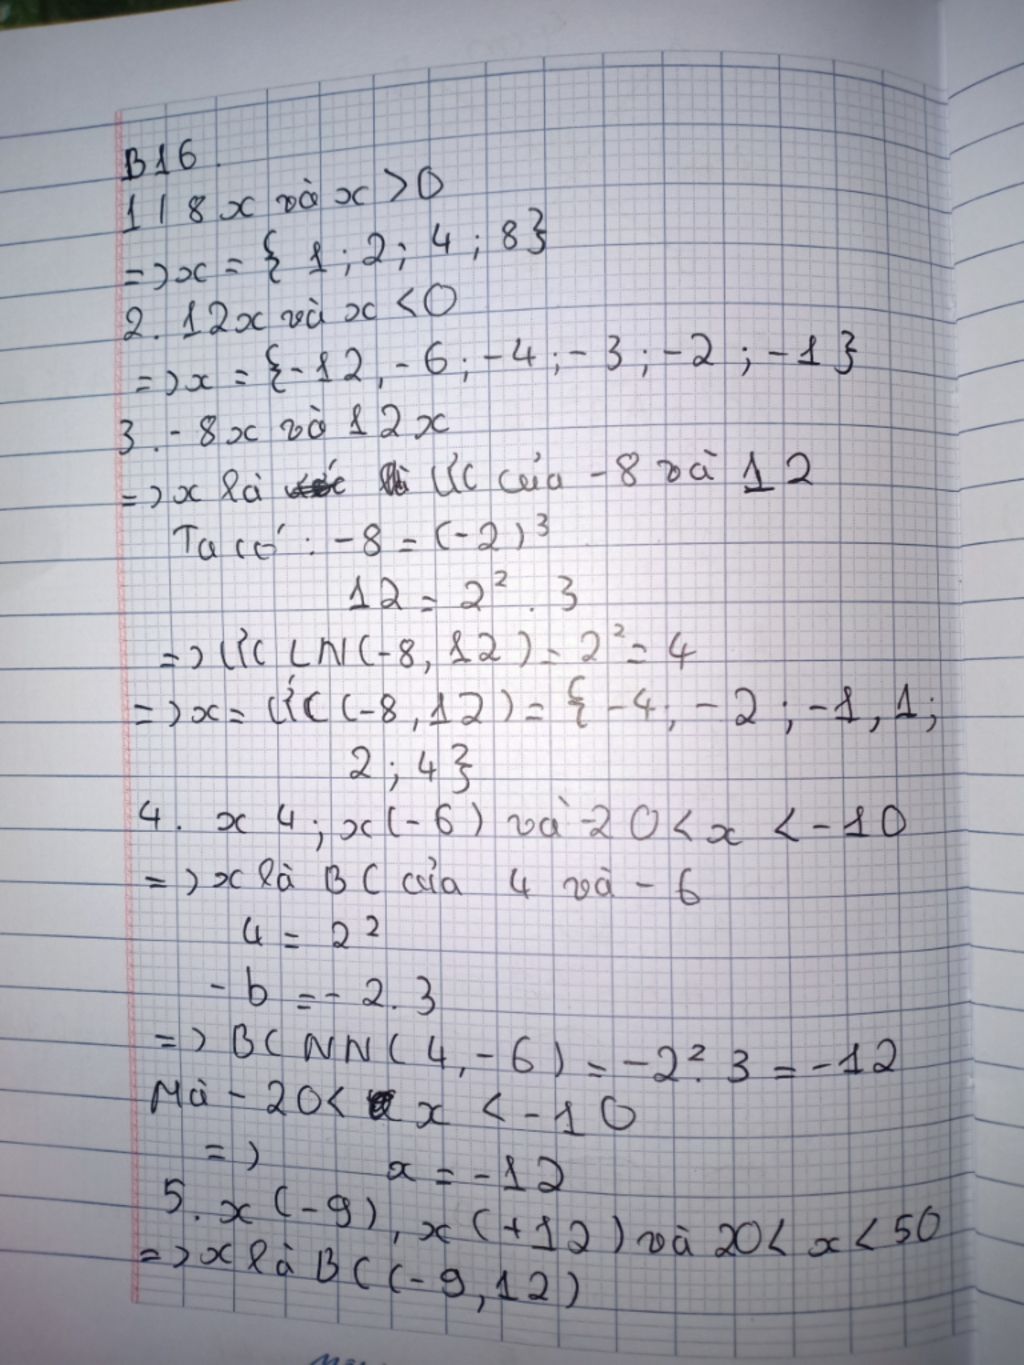 B16.
1 | 8x và x > 0
=> x = { 1 ; 2 ; 4 ; 8}
2. 12x và x < 0
=> x = {-12, -6 ; -4 ; -3 ; -2 ; -1}
3. -8x và 12x
=> x là ƯC của -8 và 12
Ta có : -8 = (-2)³
12 = 2² . 3
=> ƯCLN(-8, 12) = 2² = 4
=> x = ƯC(-8, 12) = { -4 ; -2 ; -1, 1 ;
2 ; 4}
4. x 4 ; x(-6) và -20 < x < -10
=> x là BC của 4 và -6
4 = 2²
-b = -2.3
=> BCNN(4, -6) = -2² . 3 = -12
Mà -20 < x < -10
=> x = -12
5. x (-9), x (+12) và 20 < x < 50
=> x là BC(-9, 12)